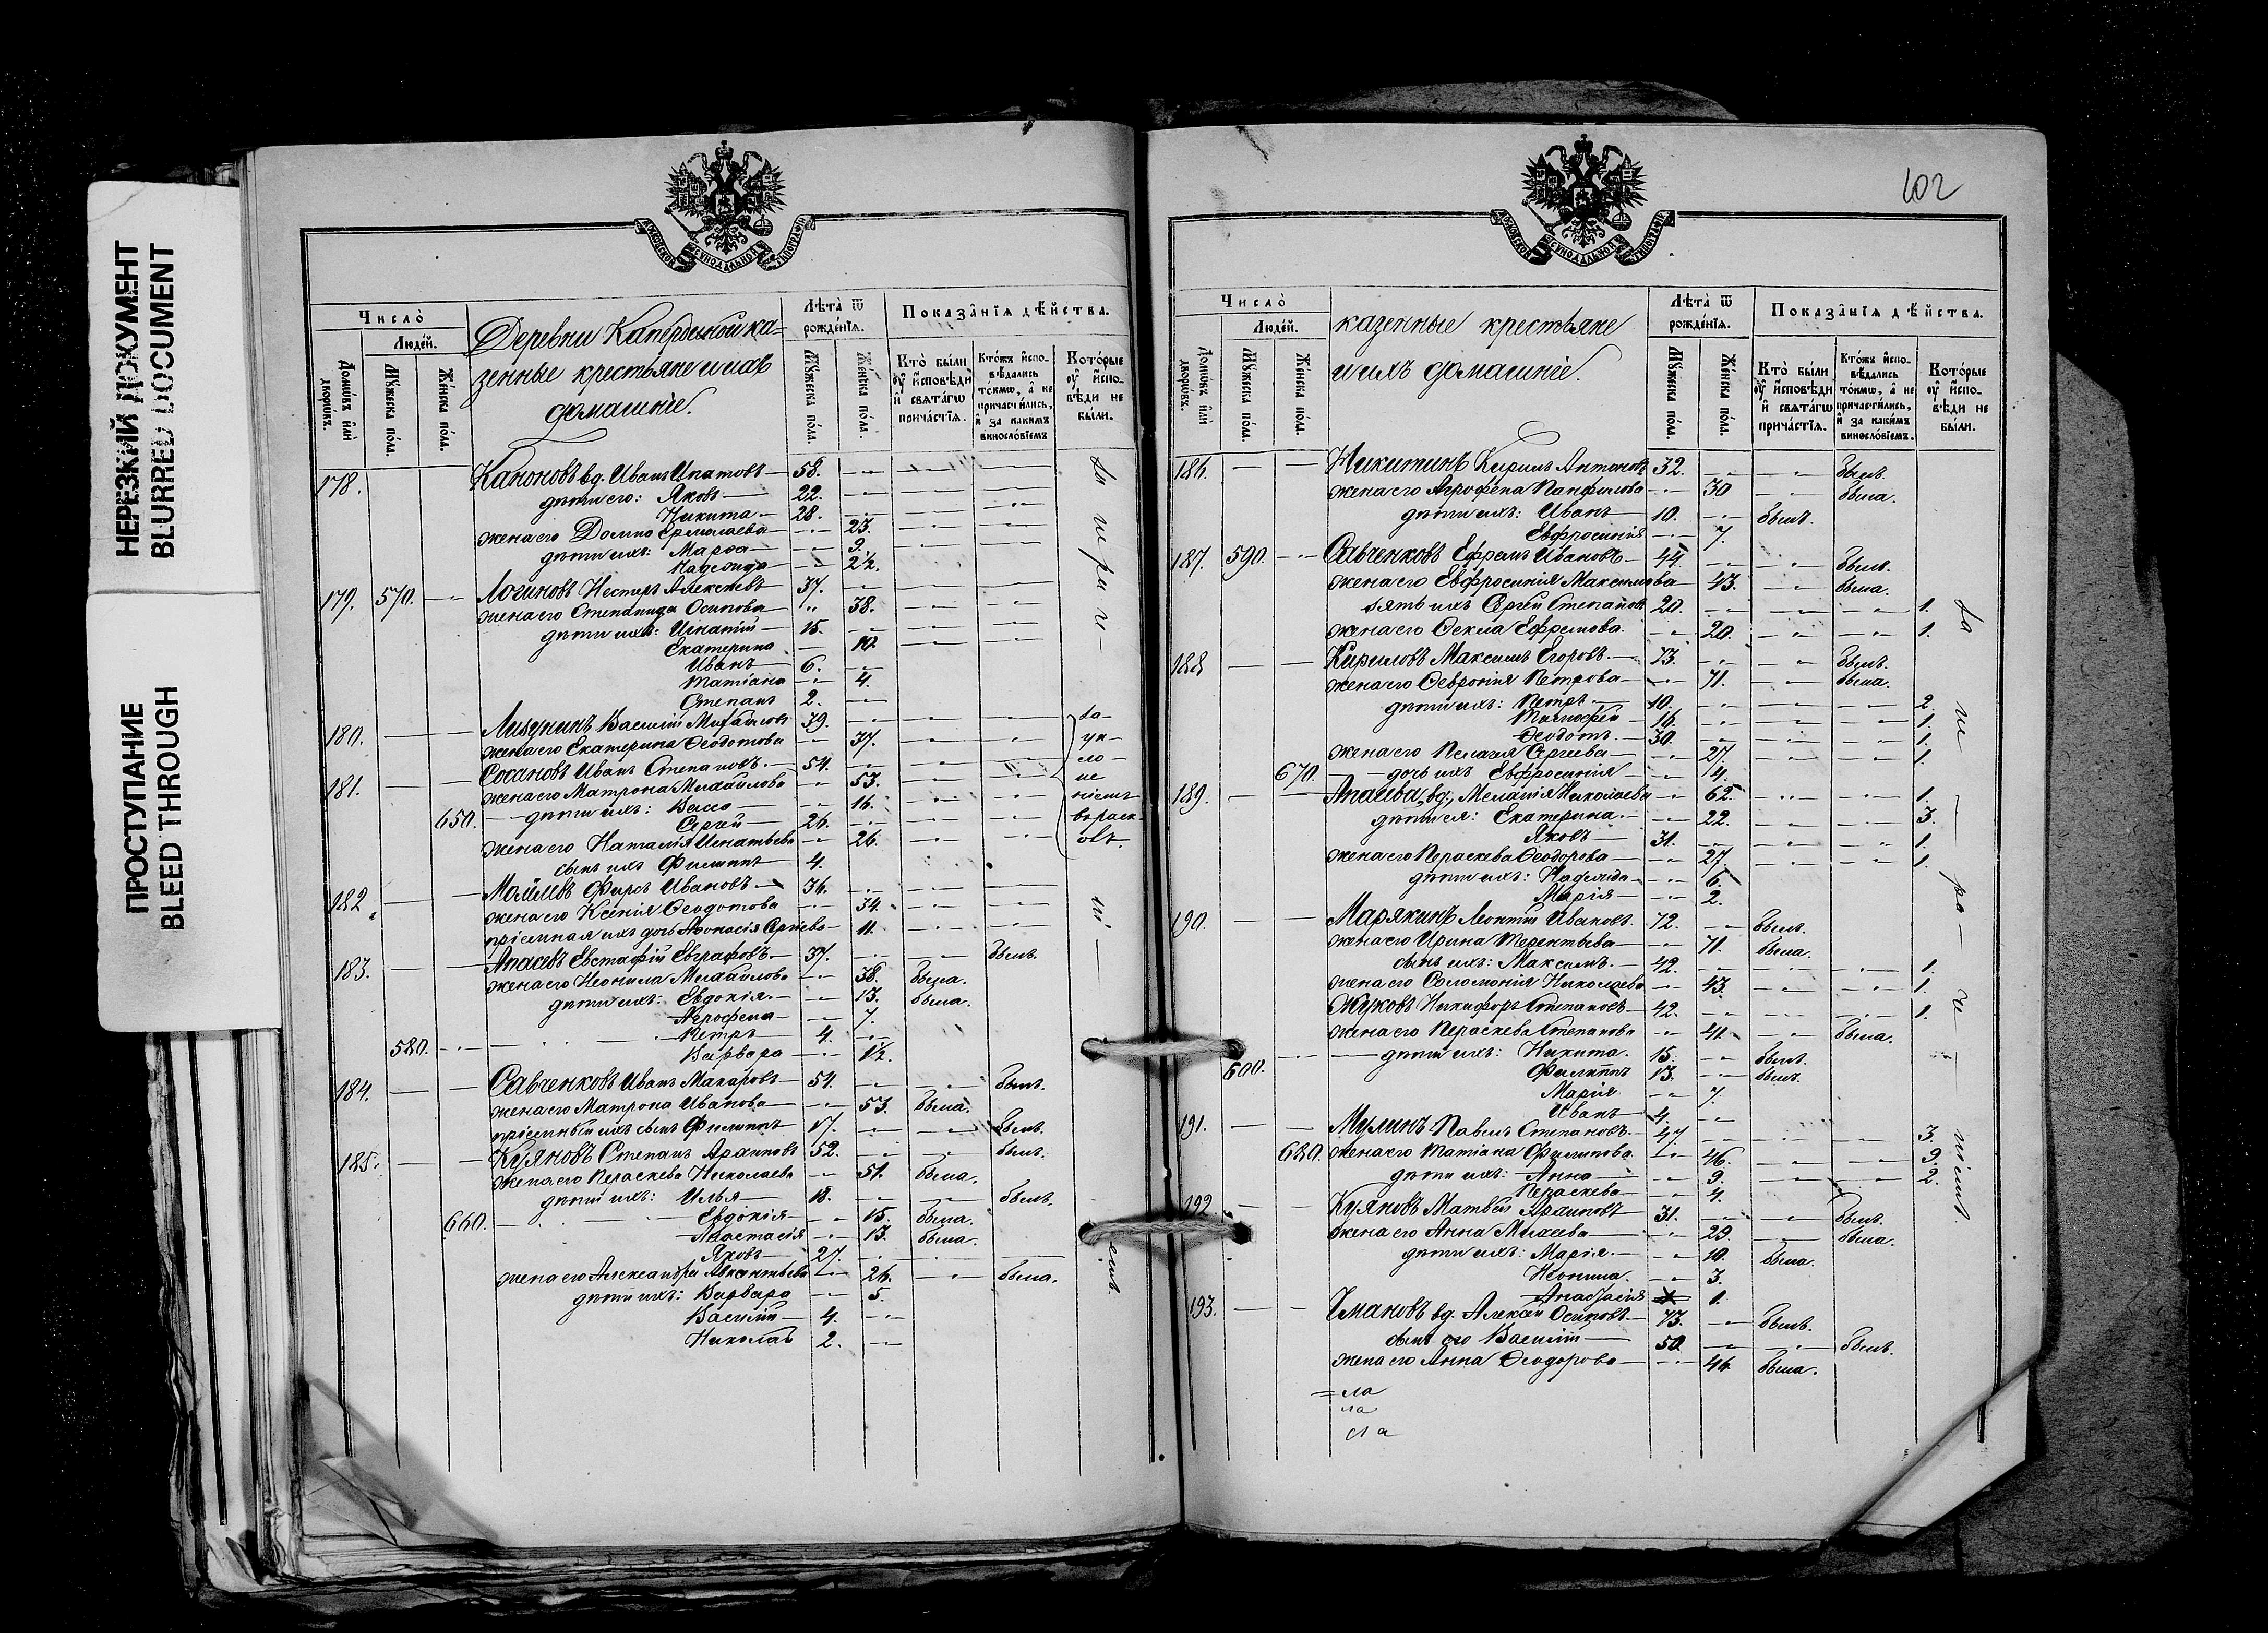 НЕРЕЗКИЙ ДОКУМЕНТ
BLURRED DOCUMENT
ПРОСТУПАНИЕ
BLEED THROUGH
МОСКОВСКОЙ СѴНОДАЛЬНОЙ ТѴПОГРАФІИ
Число̀
Люде́й.
Домѡ́въ и҆лѝ дворѡ́въ.
Мꙋ́жеска по́ла.
Же́нска по́ла.
Деревни казенные крестьяне и ихъ домашніе.
Лѣта̀ ѿ рожде́нїѧ.
Мꙋ́жеска по́ла.
Же́нска по́ла.
Показа̂нїѧ дѣ́йства.
Кто̀ бы́ли оу҆ и҆сповѣ́ди и҆ свѧта́гѡ прича́стїѧ.
Кто́жъ и҆спо-вѣ́дались то́кмѡ, а҆ не причасти́лись, и҆ за каки́мъ виносло́вїемъ
Кото́рые оу҆ и҆спо-вѣ́ди не бы́ли.
178. Каноновъ вд. Иванъ Ипатовъ 58.
дѣти его: Яковъ 22.
Никита 28.
жена его Домна Ермолаева 23.
дѣти ихъ: Марѳа 9.
Надежда 2½.
179. 570. Логиновъ Несторъ Алексѣевъ 37.
жена его Степанида Осипова 38.
дѣти ихъ: Игнатій 15.
Екатерина 10.
Иванъ 6.
Татіана 4.
Степанъ 2.
180. Лизунинъ Василій Михайловъ 39.
жена его Екатерина Ѳеодотова 37.
181. Сосановъ Иванъ Степановъ 54.
жена его Матрона Михайлова 53.
650. дѣти ихъ: Васса 16.
Сергѣй 26.
жена его Наталія Игнатьева 26.
сынъ ихъ Филиппъ 4.
За-ук-ло-не-ніемъ въ раск-олъ.
182. Ѳирсъ Ивановъ 36.
жена его Ксенія Ѳеодотова 34.
пріемная ихъ дочь Аѳанасія Сергѣева 11.
183. Апаевъ Евстафій Евграфовъ 37. былъ.
жена его Неонила Михайлова 38. была.
дѣти ихъ: Евдокія 13. была.
Агрофена 7.
Петръ 4.
580. Варвара 1½.
184. Савченковъ Иванъ Макаровъ 54. былъ.
жена его Матрона Иванова 53. была.
пріемный ихъ сынъ Филиппъ 17. былъ.
185. Куяновъ Степанъ Архиповъ 52. былъ.
жена его Параскева Николаева 51. была.
дѣти ихъ: Илья 18. былъ.
660. Евдокія 15. была.
Анастасія 13. была.
Яковъ 27.
жена его Александра Авксентьева 26. была.
дѣти ихъ: Варвара 5.
Василій 4.
Николай 2.
102
МОСКОВСКОЙ СѴНОДАЛЬНОЙ ТѴПОГРАФІИ
Число̀
Люде́й.
Домѡ́въ и҆лѝ дворѡ́въ.
Мꙋ́жеска по́ла.
Же́нска по́ла.
казенные крестьяне
и ихъ домашніе.
Лѣта̀ ѿ рожде́нїѧ.
Мꙋ́жеска по́ла.
Же́нска по́ла.
Показа̂нїѧ дѣ́йства.
Кто̀ бы́ли оу҆ и҆сповѣ́ди и҆ свѧта́гѡ прича́стїѧ.
Кто́жъ и҆спо-вѣ́дались то́кмѡ, а҆ не причасти́лись, и҆ за каки́мъ виносло́вїемъ.
Кото́рые оу҆ и҆спо-вѣ́ди не бы́ли.
186. Никитинъ Кирилъ Антоновъ 32. былъ.
жена его Агрофена Панфилова 30 была.
дѣти ихъ: Иванъ 10. былъ.
Евфросинія 7.
187. 590. Савченковъ Ефремъ Ивановъ 44. былъ.
жена его Евфросинія Максимова 43. была.
зять ихъ Сергѣй Степановъ 20. 1.
жена его Ѳекла Ефремова 20. 1.
188 Кириловъ Максимъ Егоровъ 73. былъ.
жена его Ѳевронія Петрова 71. была.
дѣти ихъ: Петръ 10. 2.
Тимоѳей 16. 1.
Ѳеодотъ 30. 1.
жена его Пелагія Сергѣева 27. 1.
670. дочь ихъ Евфросинія 4.
189. Апаева, вд., Меланія Николаева 62. 1.
дѣти ея: Екатерина 22. 3.
Яковъ 31. 1.
жена его Параскева Ѳеодорова 27. 1.
дѣти ихъ: Надежда 6.
Марія 2.
190. Марякинъ Леонтій Ивановъ 72. былъ.
жена его Ирина Терентьева 71. была.
сынъ ихъ: Максимъ 42. 1.
жена его Соломонія Николаева 43. 1.
Жуковъ Никифоръ Степановъ 42. 1.
жена его Параскева Степанова 41. была.
600. дѣти ихъ: Никита 15. былъ.
Филиппъ 13. былъ.
Марія 7.
Иванъ 4.
191. Мулинъ Павелъ Степановъ 47. 3.
680. жена его Татіана Филипова 46. 9.
дѣти ихъ: Анна 9. 2.
Параскева 4.
192 Куяновъ Матвѣй Архиповъ 31. былъ.
жена его Анна Михеева 29. была.
дѣти ихъ: Марія 10. была.
Неонила 3.
Анастасія 1.
193. вд. Алексѣй Осиповъ 73. былъ.
сынъ его Василій 50. былъ.
жена его Анна Ѳеодорова 46. была.
=ла
ла
ла